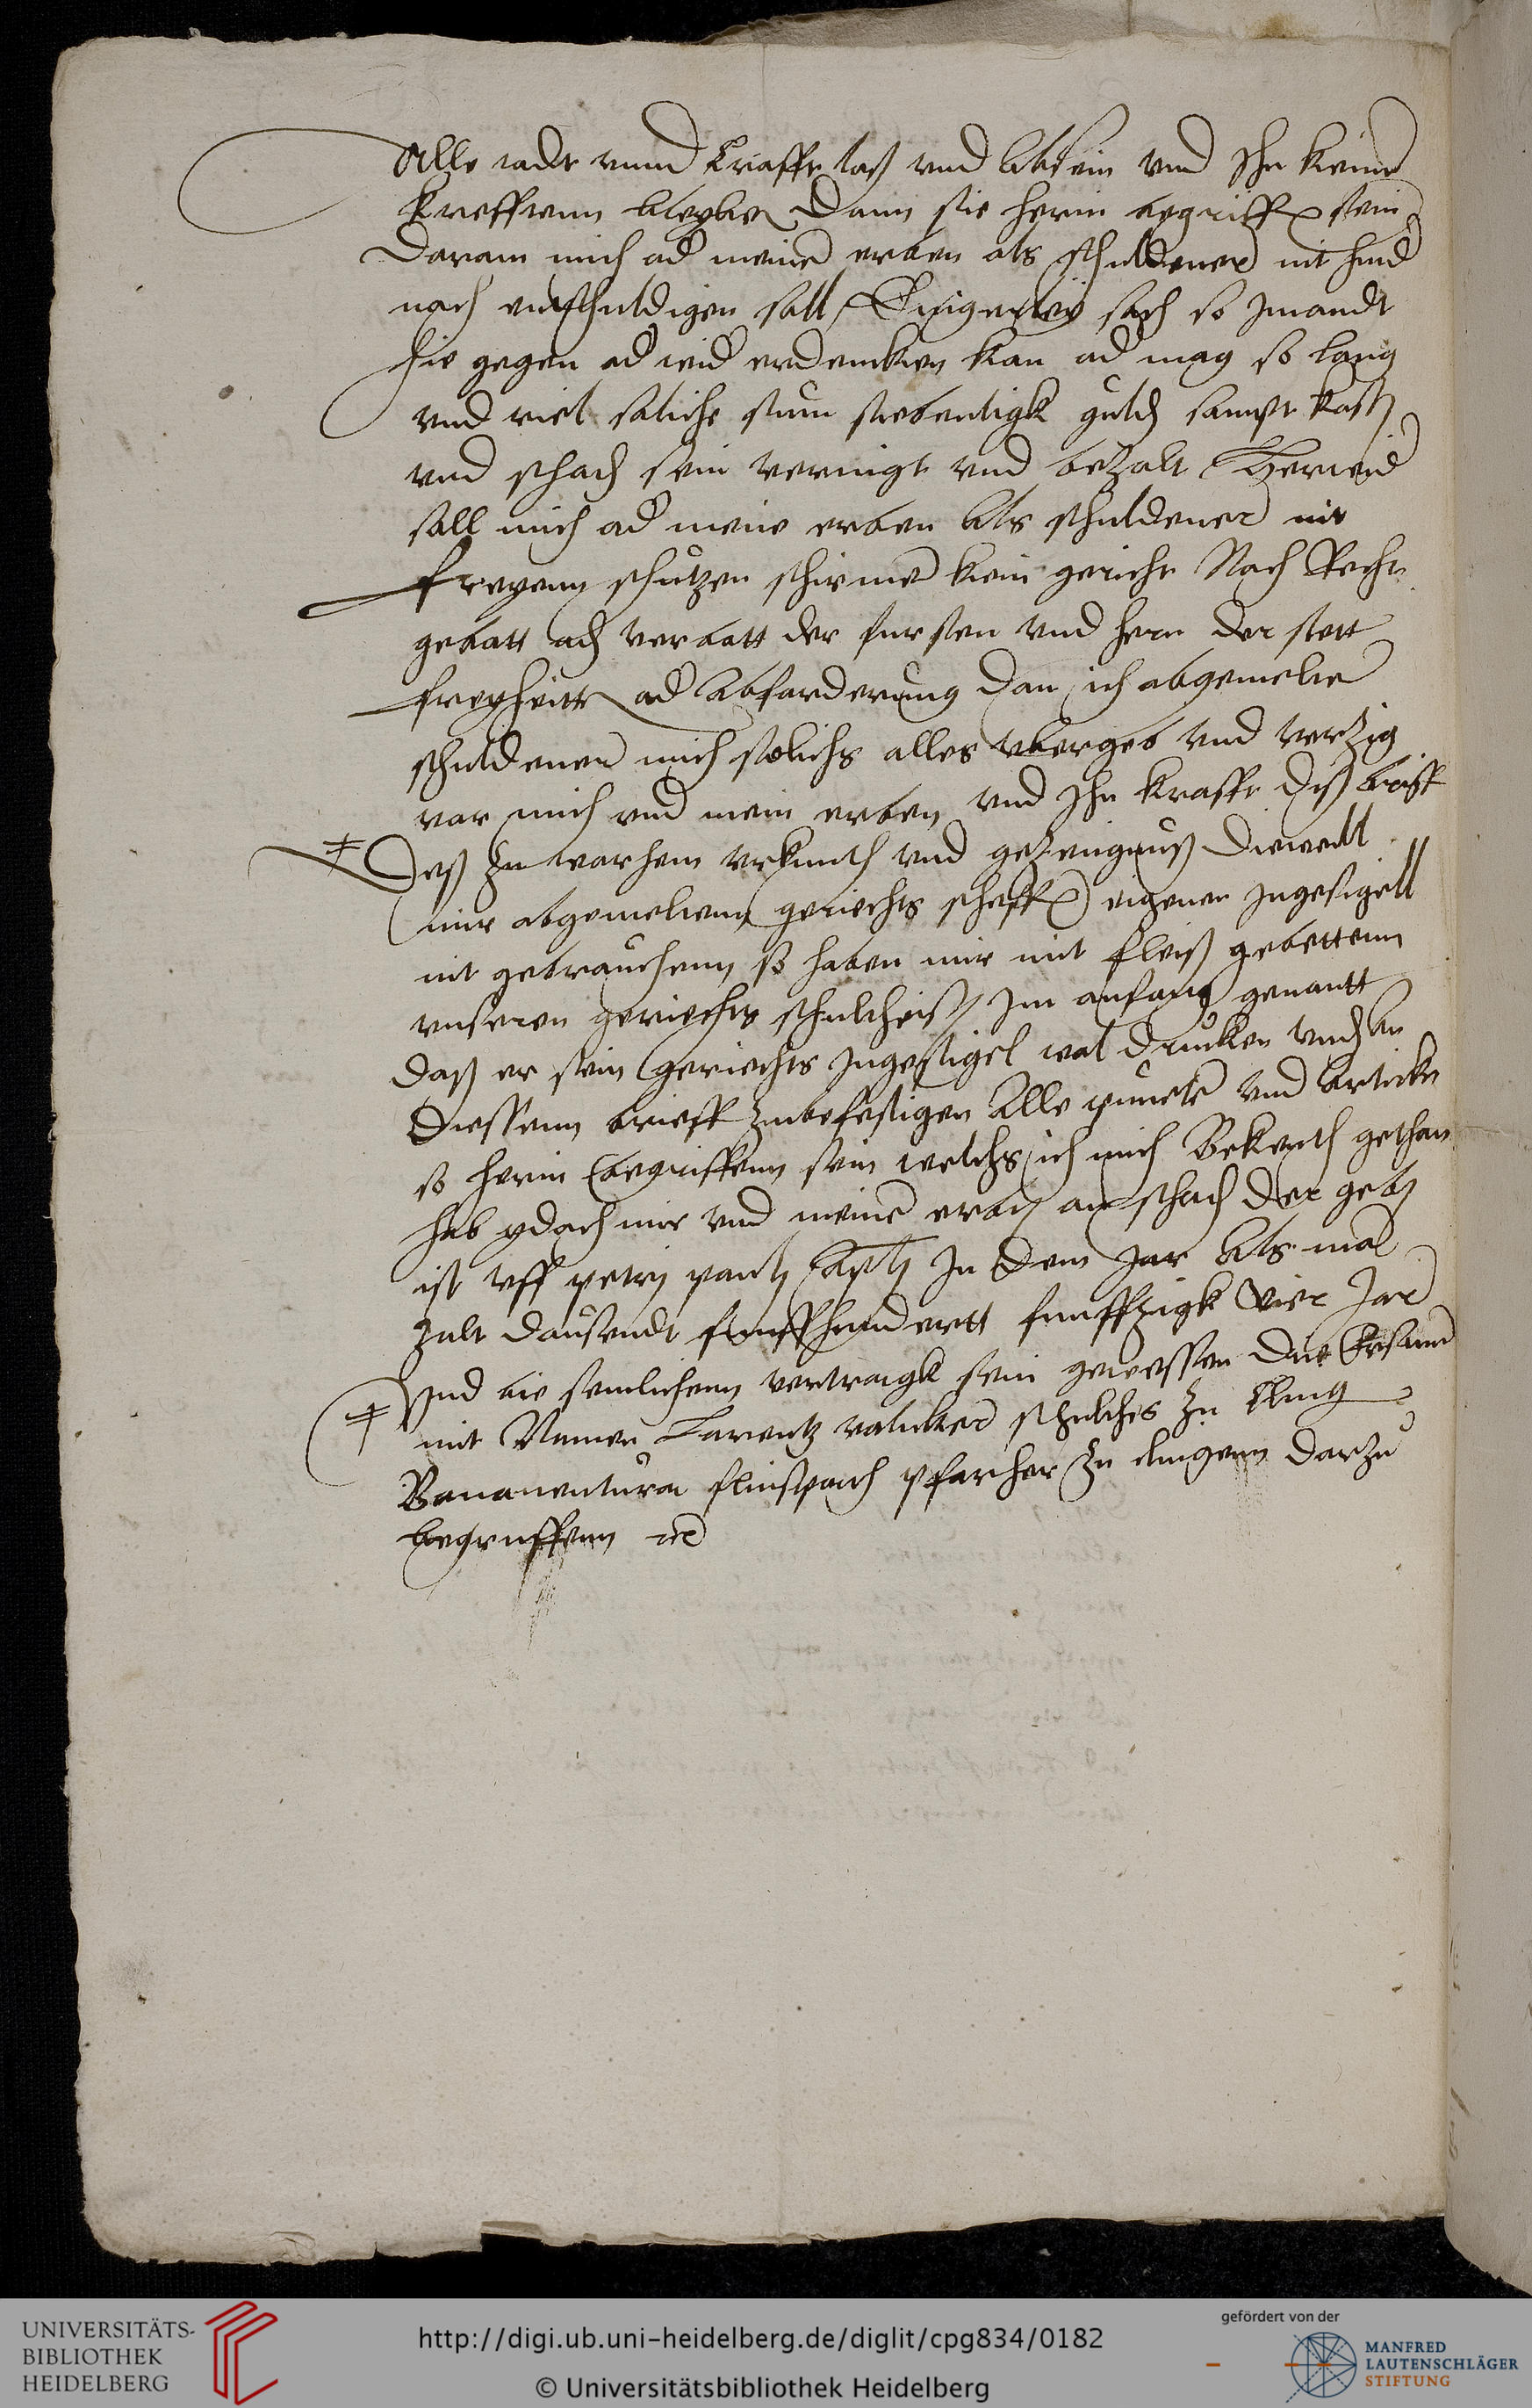 Alle nadt vnnd Crafft laß vnd absein vnd Ihn keine
kreffrenn bleyben Dann sie herin begriffen sein
Daram mich od meine erben als schuldener nit hind
nach entschuldigen sall Einigerley sach so Jmandt
hie gegen od wid erdencken kan od mag so lang
vnd viel saliche sum siebentigk guld sampt kost
vnd schad sein vernigt vnd bezalt Herwid
sall mich od meine erben Als schuldener nit
freyenn schutzen schirme kein gericht Noch Recht
gebatt ad verbatt der fursten vnd hern der stett
freyheitt od Abfarderung dan ich abgemelte
schuldener mich solichs alles vbergeb vnd verzig
var mich vnd mein erben vnd Ihn krafft diß brieff
Deß zu warhem vrkunth vnd gezeugnuß Dieweill
mir abgemelten gerichts scheffen eigener Ingesigell
nit gebrauchenn so haben mir mit fleiß gebettenn
vnseren gerichts schultheiß Im anfang genantt
daß er sein gerichts Ingesigel wol drucken vnden an
diessenn brieff zubefestigen Alle punckte vnd Artickel
so herin begriffenn sein welchs ich mich Bekenth gethan
hab ydoch mir vnd meine erben an schad Der geben
ist vff petry pauly Apty In dem Jar Als mal
zalt dausendt funffhundertt funffzigk vier Jar
Vnd bie semlichenn vertragk sein gewessen die Ersame
mit Namen Larentz valicker schultheis zu Cling
Bananentura flinspach pfarher zu clingenn darzu
begruffenn etc
UNIVERSITÄTS-
BIBLIOTHEK
HEIDELBERG
http://digi.ub.uni-heidelberg.de/diglit/cpg834/0182
© Universitätsbibliothek Heidelberg
gefördert von der
MANFRED
LAUTENSCHLÄGER
STIFTUNG